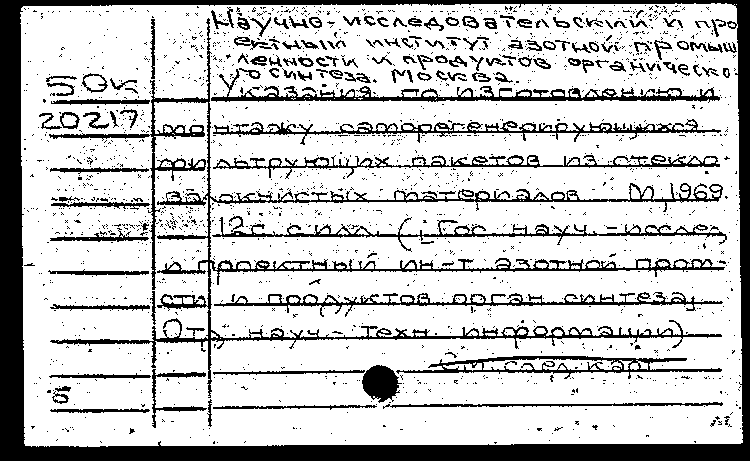 Научно-исследовательский и про
ектный институт азотной промыш
ленности и продуктов органическо-
го синтеза. Москва.
50к Указания по изготовлению и
20217 монтажу саморегенерирующихся
фильтрующих пакетов из стекло-
волокнистых материалов М, 1969.
12с. с илл. (Гос. науч.-исслед,
и проектный ин-т азотной пром-
сти и продуктов орган синтеза,
Отд науч-техн. информации)
См. след. карт
б
м